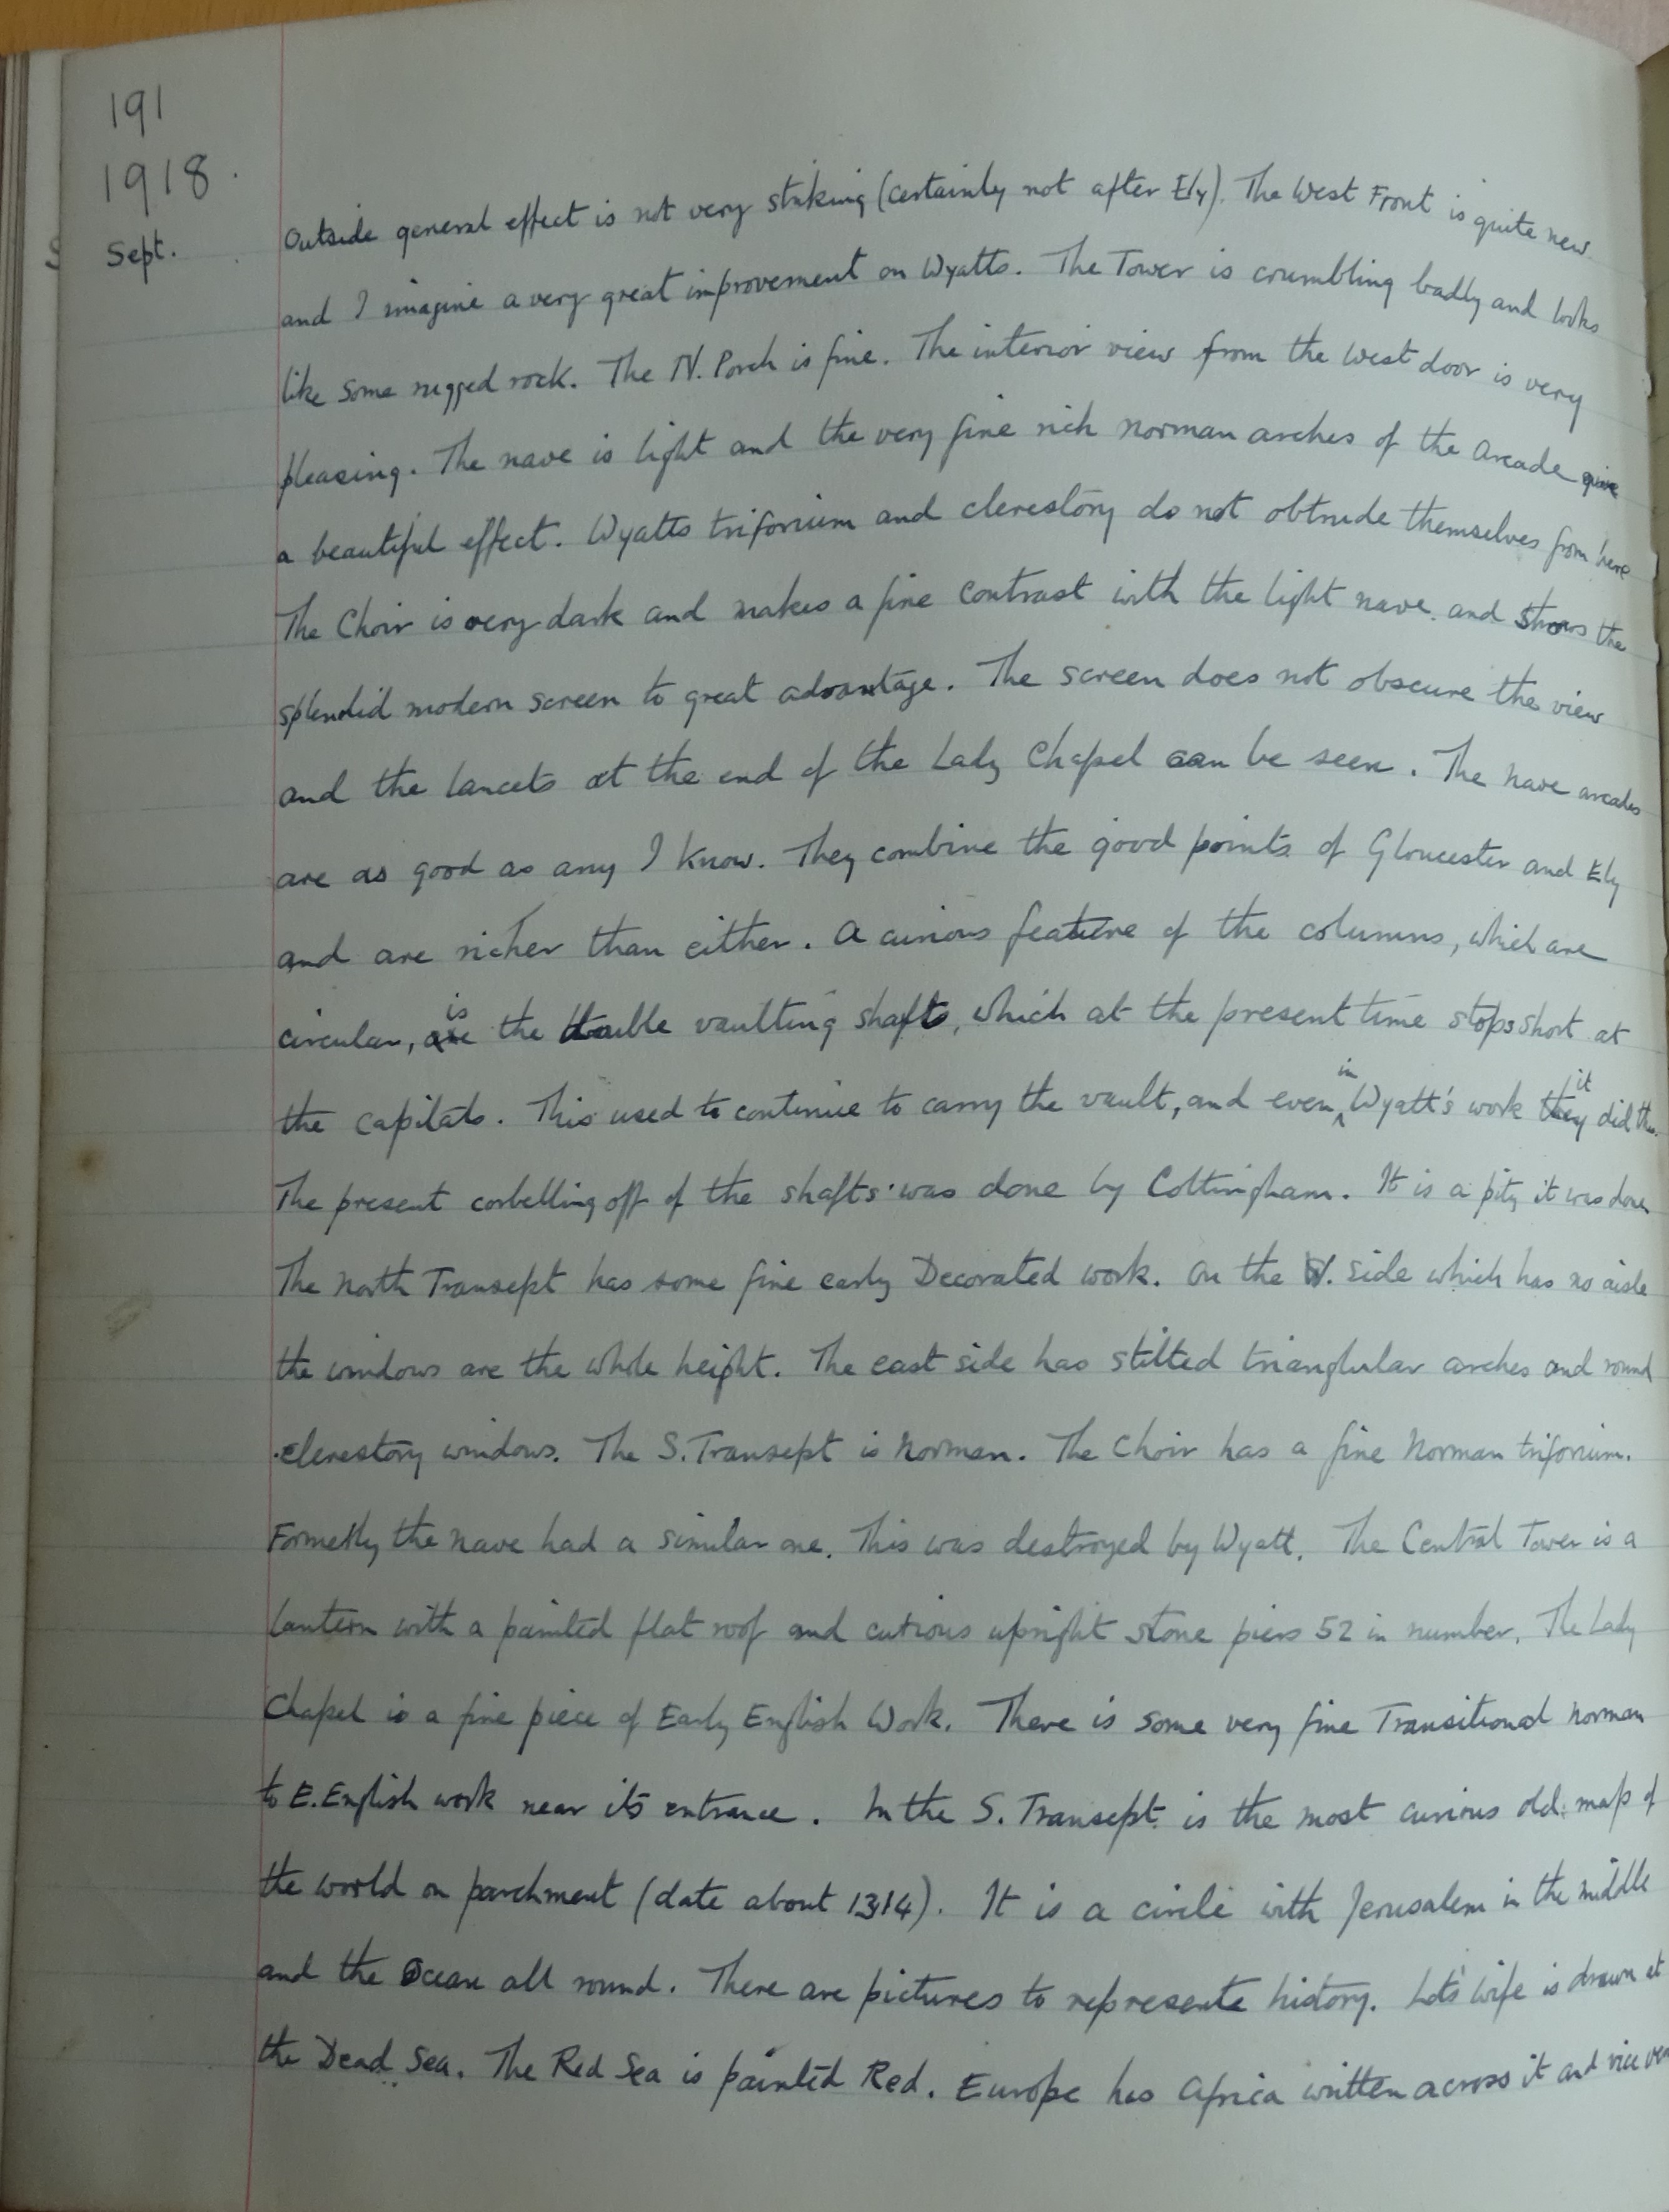 191
1918.
Sept.
Outside general effect is not very striking (certainly not after Ely). The West Front is quite new
and I imagine a very great improvement on Wyatts. The Tower is crumbling badly and looks
like some rugged rock. The N. Porch is fine. The interior view from the west door is very
pleasing. The nave is light and the very fine rich norman arches of the arcade give
a beautiful effect. Wyatts triforium and clerestory do not obtrude themselves from here
The Choir is very dark and makes a fine contrast with the light nave and shows the
splendid modern screen to great advantage. The screen does not obscure the view
and the lancets at the end of the Lady Chapel can be seen. The nave arcades
are as good as any I know. They combine the good points of Gloucester and Ely
and are richer than either. A curious feature of the columns, which are
circular, is the double vaulting shafts, which at the present time stops short at
the capitals. This used to continue to carry the vault, and even in Wyatt's work it did
The present corbelling off of the shafts was done by Cottingham. It is a pity it was done
The North Transept has some fine early Decorated work. On the W. side which has no aisle
the windows are the whole height. The east side has stilted trianglular arches and round
clerestory windows. The S. Transept is Norman. The Choir has a fine Norman triforium.
Formerly the nave had a similar one. This was destroyed by Wyatt. The Central Tower is a
Lantern with a painted flat roof and curious upright stone piers 52 in number. The Lady
Chapel is a fine piece of Early English Work. There is some very fine Transitional norman
to E. English work near its entrance. In the S. Transept is the most curious old map of
the world on parchment (date about 1314). It is a circle with Jerusalem in the middle
and the Ocean all round. There are pictures to represente history. Lot's wife is drawn at
the Dead Sea. The Red Sea is painted Red. Europe has Africa written across it and vice